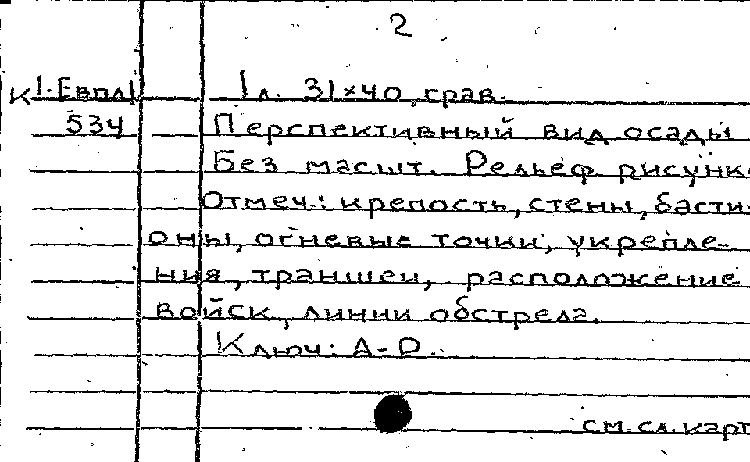 2
К 1-Евпл 1 л. 31×40, грав.
534 Перспективный вид осады
Без масшт. Рельеф рисунк
Отмеч: крепость, стены, басти-
оны, огневые точки, укрепле-
ния, траншеи, расположение
войск, линии обстрела.
Ключ: A-D.
см. сл. карт